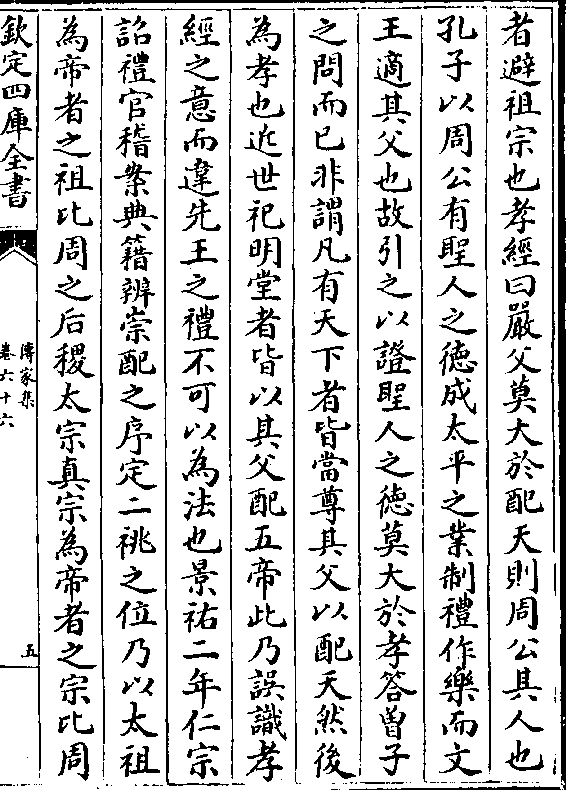 者避祖宗也孝經曰嚴父莫大於配天則周公其人也
孔子以周公有聖人之徳成太平之業制禮作樂而文
王適其父也故引之以證聖人之徳莫大於孝答曽子
之問而已非謂凡有天下者皆當尊其父以配天然後
為孝也近世祀明堂者皆以其父配五帝此乃誤識孝
經之意而違先王之禮不可以為法也景祐二年仁宗
詔禮官稽案典籍辨崇配之序定二祧之位乃以太祖
為帝者之祖比周之后稷太宗真宗為帝者之宗比周
欽定四庫全書
傳家集
卷六十六
五